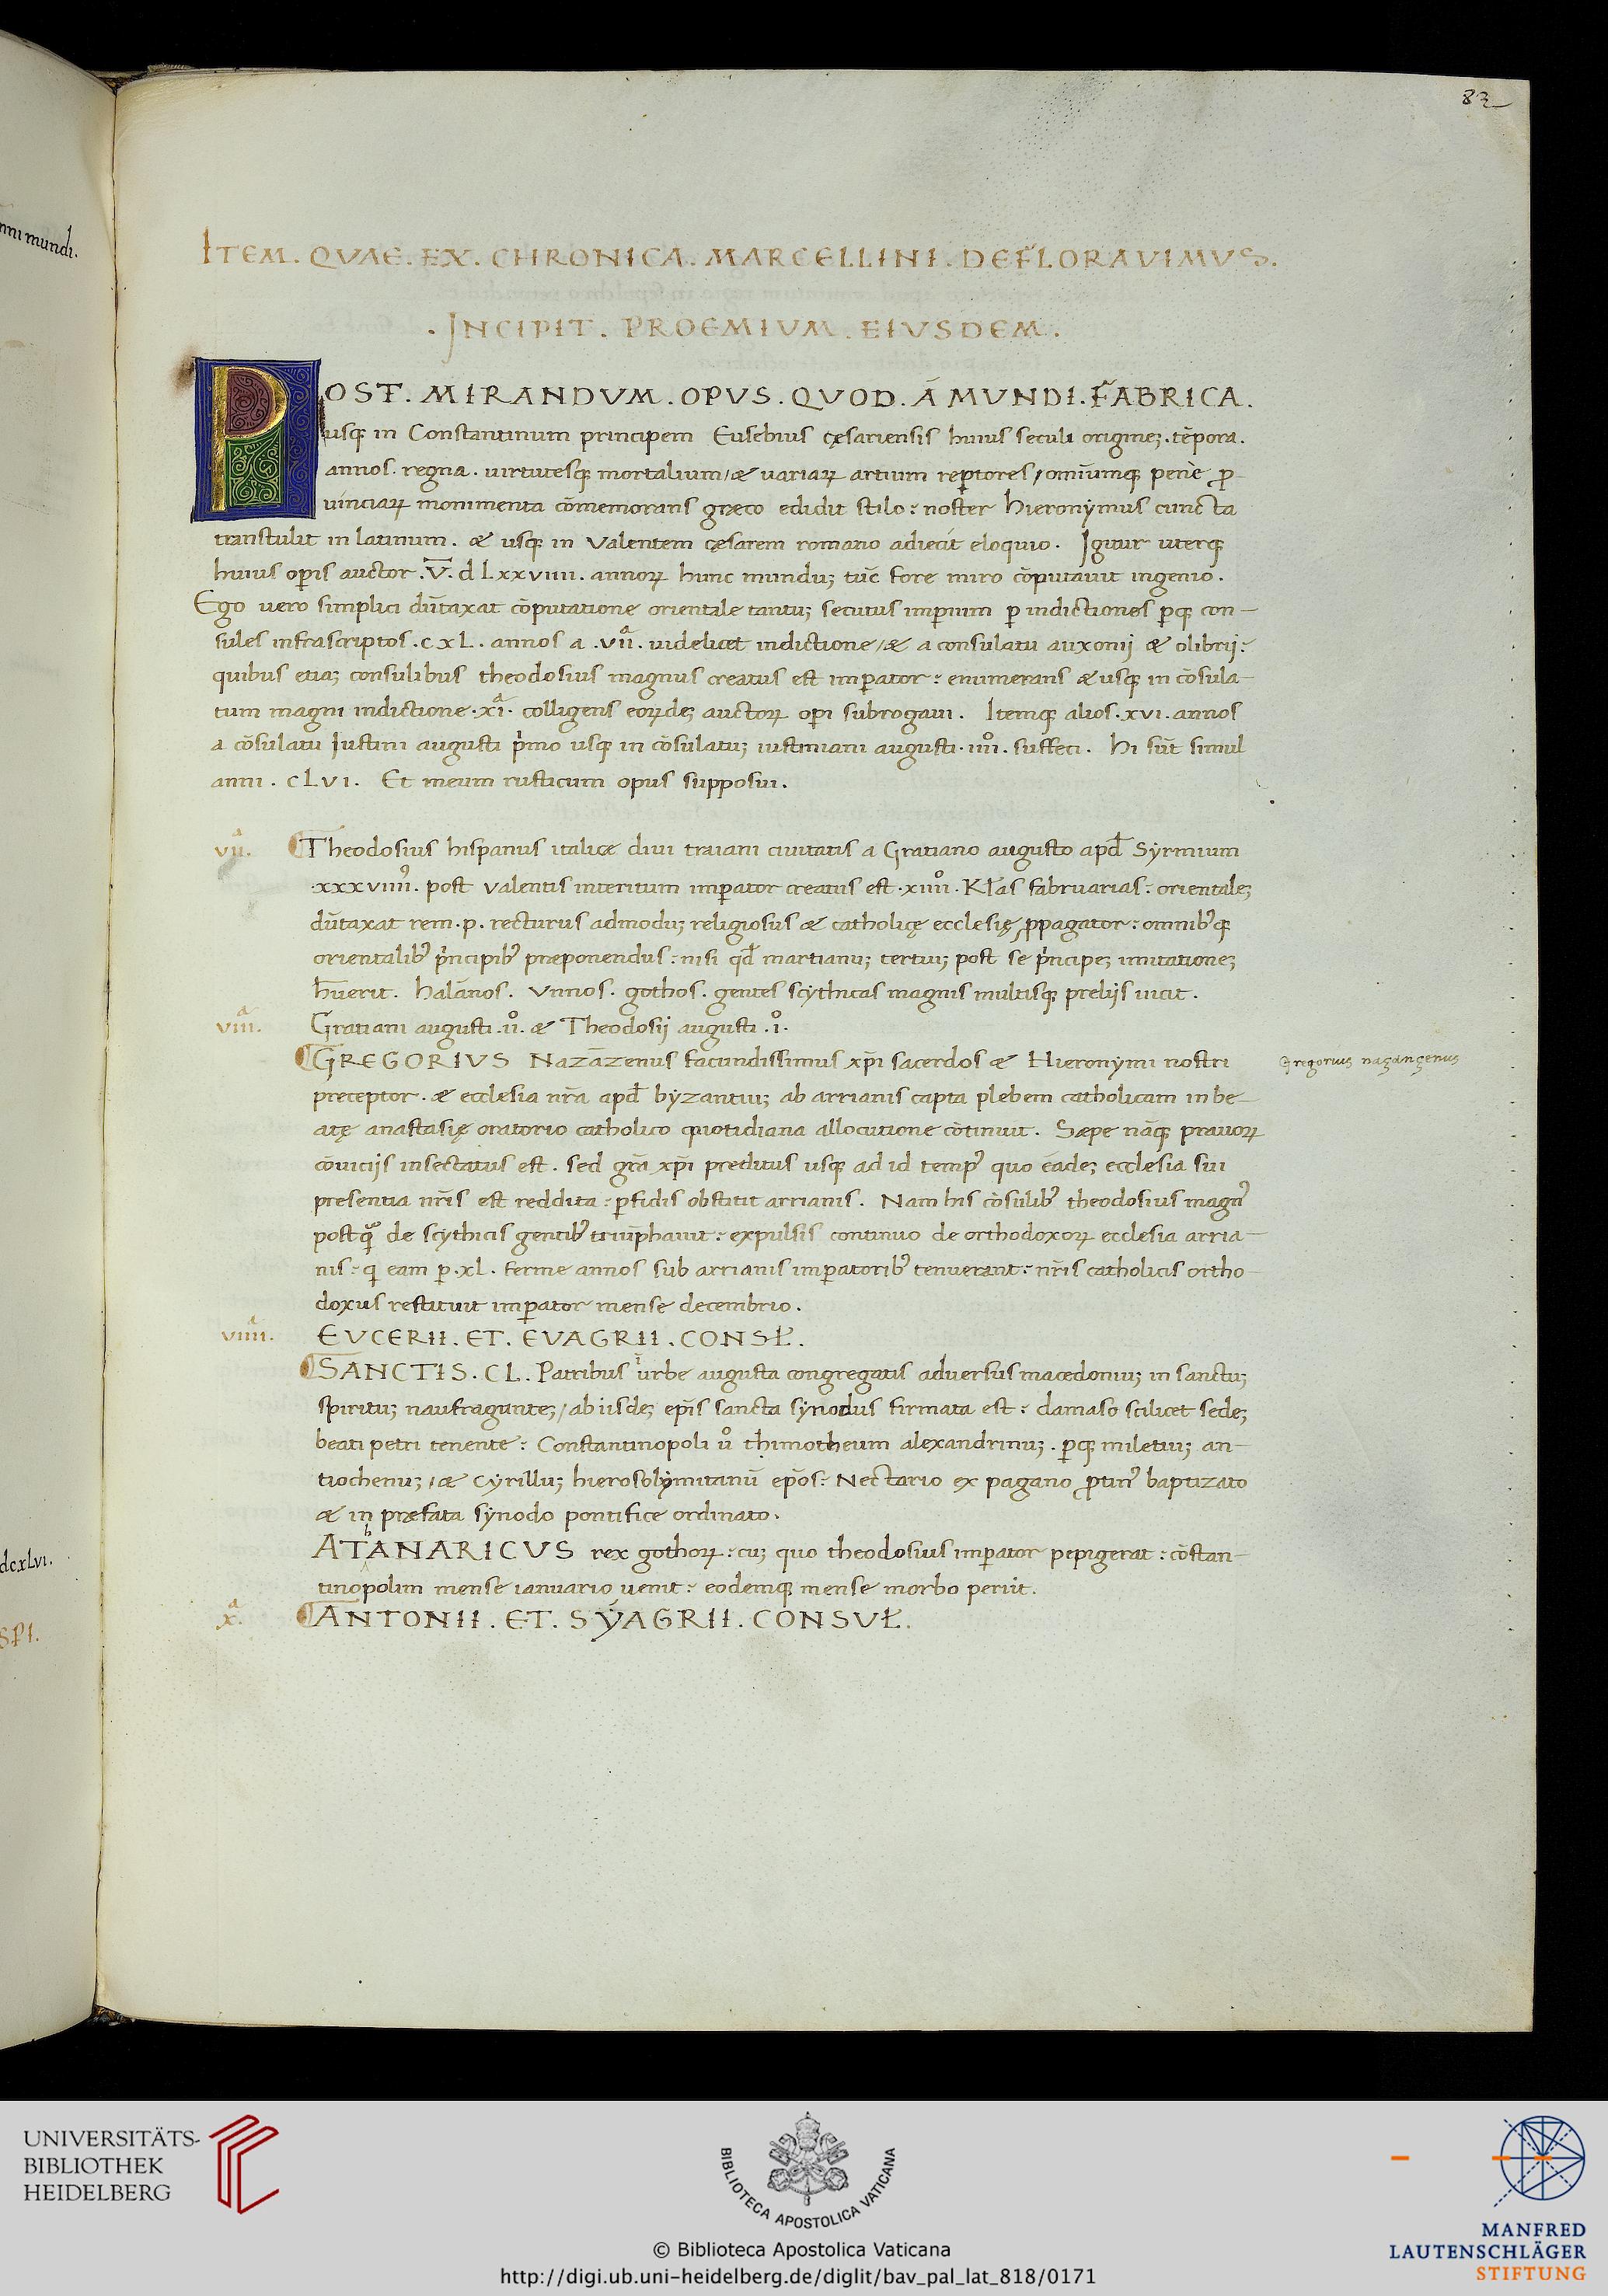 82
nni mundi.
ITEM. QVAE. EX. CHRONICA. MARCELLINI. DEFLORAVIMVS.
.INCIPIT. PROEMIVM. EIVSDEM.
POST. MIRANDVM. OPVS. QVOD. Á MVNDI. FABRICA.
usq; in Constantinum principem Eusebius cęsariensis huius seculi origine;. tēpora.
annos. regna. virtutesq; mortalium / & uariaꝝ artium rep̱tores / omiumq; penè ꝓ-
uinciaꝝ monimenta cōmemorans græco edidit stilo: noster Hieronymus cuncta
transtulit in latinum. & usq; in Valentem cęsarem romano adiecit eloquio. Igitur uterq;
huius op̱is auctor .V̅. d Lxxviiii. annoꝝ hunc mundu; tūc fore miro cōputauit ingenio.
Ego vero simplici dūtaxat cōputatione orientale tantu; secutus imꝑium ꝑ indictiones ꝑq; con-
sules infrascriptos .cxL. annos a .viiª. uidelicet indictione / & a consulatu auxonij & olibrij:
quibus etia; consulibus theodosius magnus creatus est imꝑator: enumerans & usq; in cōsula-
tum magni indictione .xiª. colligens eoꝝde; auctoꝝ oꝑi subrogaui. Itemq; alios .xvi. annos
a cōsulatu Iustini augusti pͥmo usq; in cōsulatu; iustiniani augusti .iiiiº. suffeci. Hi sūt simul
anni. cLvi. Et meum rusticum opus supposui.
viiª. Theodosius hispanus italicæ diui traiani ciuitatis a Gratiano augusto apđ Syrmium
.xxxviiii⁹. post Valentis interitum imꝑator creatus est .xiiiiº. Kłas fabruarias: orientale;
dūtaxat rem .p. recturus admodu; religiosus & catholicę ecclesię ꝓpagator: omnib⁹q;
orientalib⁹ pͥncipib⁹ præponendus: nisi qđ martianu; tertiu; post se pͥncipe; imitatione;
h̄uerit. halānos. Vnnos. gothos. gentes scythicas magnis multisq; prelijs uicit.
viiiª. Gratiani augusti .uº. & Theodosij augusti .iº.
GREGORIVS Nazāzenus facundissimus xp̄i sacerdos & Hieronymi nostri
Gregorius naçançenus
preceptor. & ecclesia nr̄a apđ byzantiu; ab arrianis capta plebem catholicam in be-
atę anastasię oratorio catholico quotidiana allocutione cōtinuit. Sæpe nāq; prauoꝝ
cōuicijs insectatus est. sed gr̄a xp̄i preditus usq; ad id temp⁹ quo eade; ecclesia sui
presentia nr̄is est reddita: ꝑfidis obstitit arrianis. Nam his cōsulib⁹ theodosius magn⁹
postqᷓ de scythicis gentib⁹ triūphauit: expulsis continuo de orthodoxoꝝ ecclesia arria-
nis: q̄ eam ꝑ .xl. ferme annos sub arrianis imꝑatorib⁹ tenuerant: nr̄is catholicis ortho-
doxus restituit imꝑator mense decembrio.
viiiiª. EVCERII. ET. EVAGRII. CONSŁ.
SANCTIS. CL. Patribus ī urbe augusta congregatis aduersus macedoniu; in sanctu;
spiritu; naufragante; / ab iisde; ep̄is sancta synodus firmata est: damaso scilicet sede;
beati petri tenente: Constantinopoli uº thimotheum alexandrinu;. ꝑq; miletiu; an-
tiochenu; / & Cyrillu; hierosolymitanū ep̄os: Nectario ex pagano ꝓtin⁹ baptizato
& in præfata synodo pontifice ordinato.
ATʰANARICVS rex gothoꝝ: cu; quo theodosius imꝑator pepigerat: cōstan-
tinopolim mense ianuario uenit: eodemq; mense morbo periit.
xª. ANTONII. ET. SYAGRII. CONSVŁ.
dcxLvi.
UNIVERSITÄTS-
BIBLIOTHEK
HEIDELBERG
BIBLIOTECA APOSTOLICA VATICANA
© Biblioteca Apostolica Vaticana
http://digi.ub.uni-heidelberg.de/diglit/bav_pal_lat_818/0171
MANFRED
LAUTENSCHLÄGER
STIFTUNG